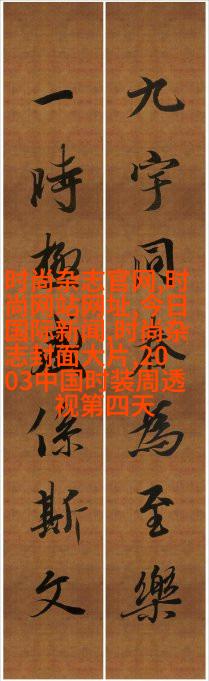 九宇同為至樂
一時係斯文
时尚杂志官网,时
尚网站网址,今日
国际新闻,时尚杂
志封面大片,20
03中国时装周透
视第四天